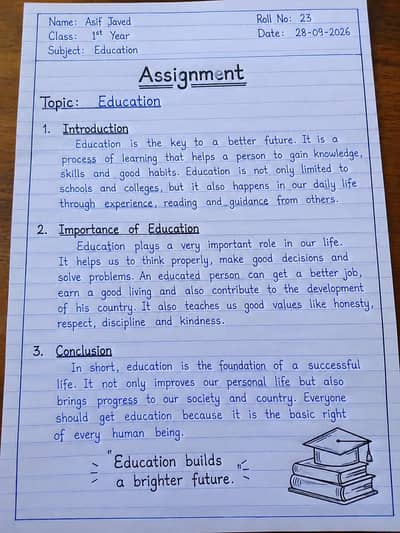 Name: Asif Javed
Roll No: 23
Class: 1st Year
Date: 28-09-2026
Subject: Education
Assignment
Topic: Education
1. Introduction
Education is the key to a better future. It is a
process of learning that helps a person to gain knowledge,
skills and good habits. Education is not only limited to
schools and colleges, but it also happens in our daily life
through experience, reading and guidance from others.
2. Importance of Education
Education plays a very important role in our life.
It helps us to think properly, make good decisions and
solve problems. An educated person can get a better job,
earn a good living and also contribute to the development
of his country. It also teaches us good values like honesty,
respect, discipline and kindness.
3. Conclusion
In short, education is the foundation of a successful
life. It not only improves our personal life but also
brings progress to our society and country. Everyone
should get education because it is the basic right
of every human being.
"Education builds
a brighter future."